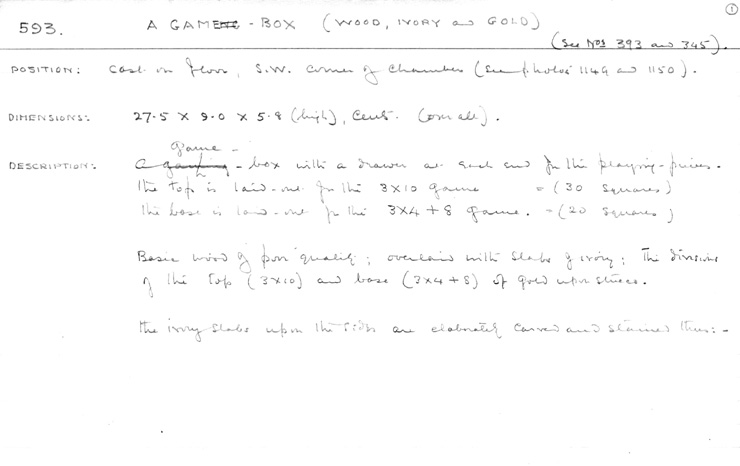 ①
593. A GAME - BOX (WOOD, IVORY and GOLD)
(See Nos 393 and 345).
POSITION: Cast on floor, S.W. corner of Chamber (See photos 1149 and 1150).
DIMENSIONS: 27.5 X 9.0 X 5.8 (high), Cent. (over all).
game -
DESCRIPTION: A gaming - box with a drawer at each end for the playing-pieces.
The top is laid-out for the 3X10 game = (30 squares)
The base is laid-out for the 3X4+8 game. - (20 squares)
Basic wood of poor quality; overlaid with slabs of ivory; The divisions
of the top (3X10) and base (3X4+8) of gold upon stucco.
The ivory slabs upon the sides are elaborately carved and stained thus:-